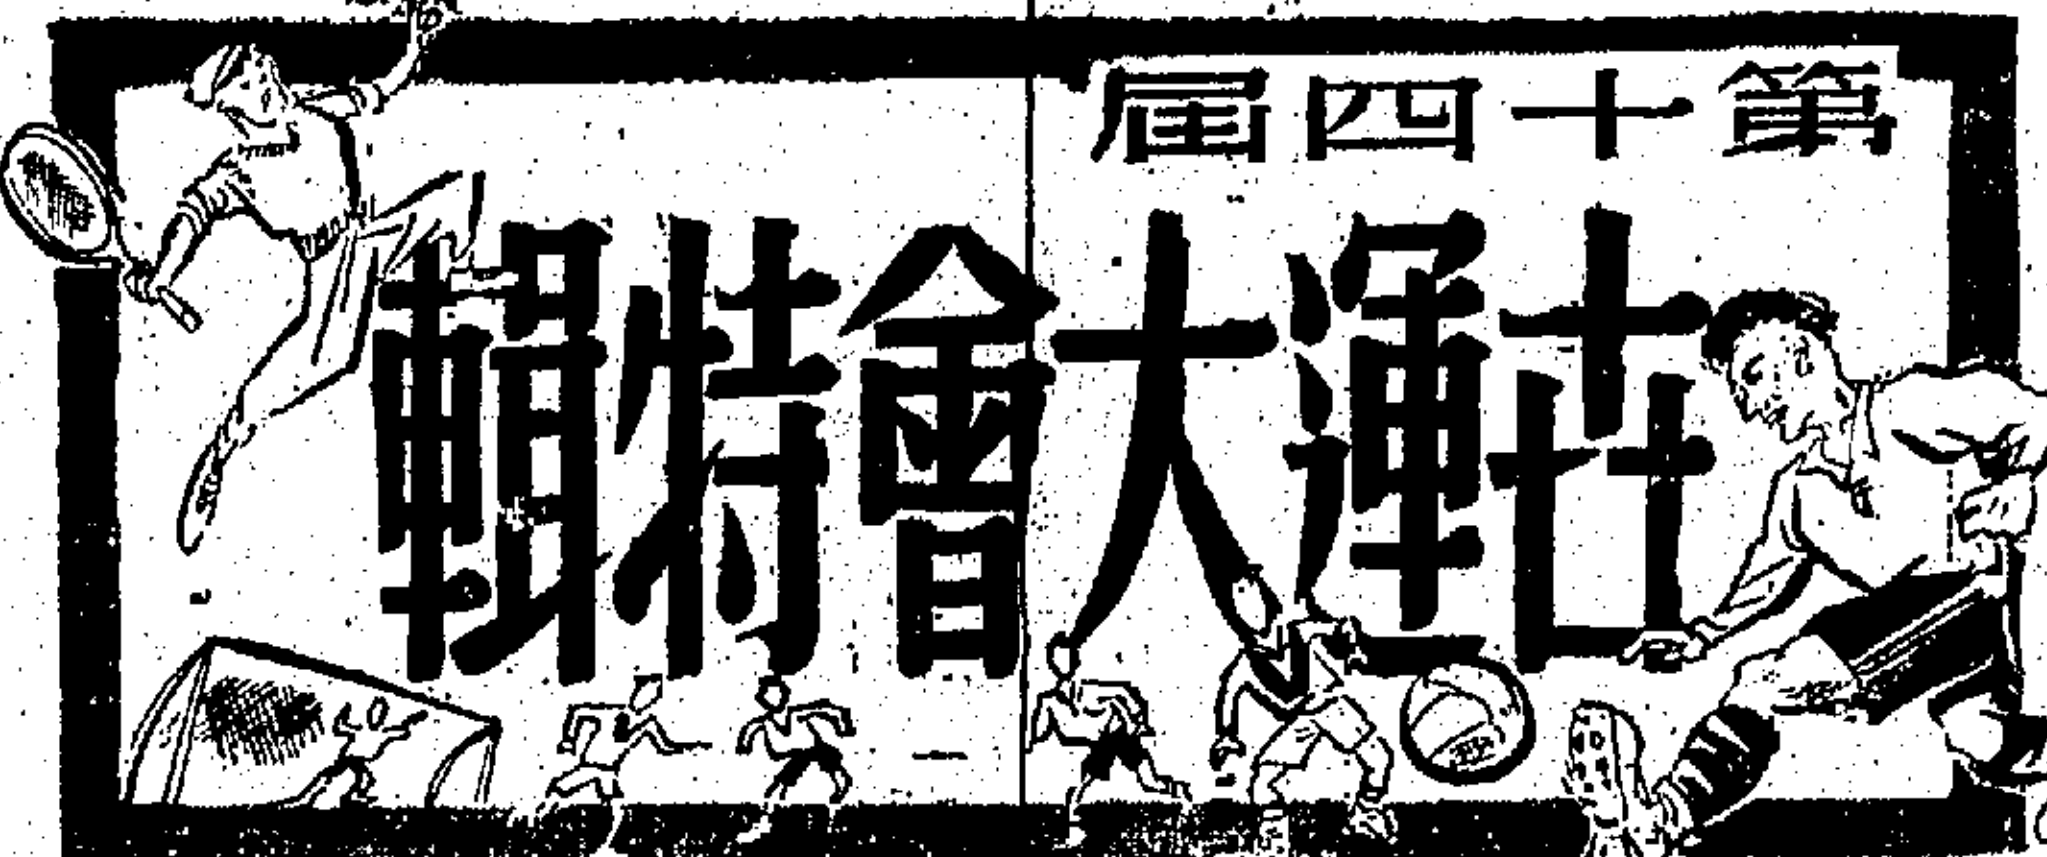 第十四屆
世運大會特輯